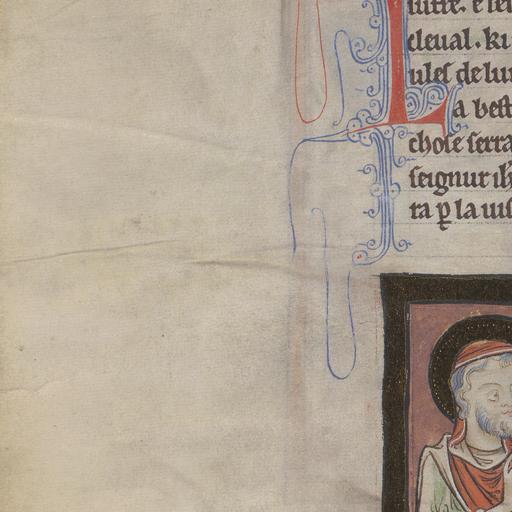 iurre. e sei
cleual. ki
ules de lur
La best
chose serra
seignur ih
ra p̱ la uis